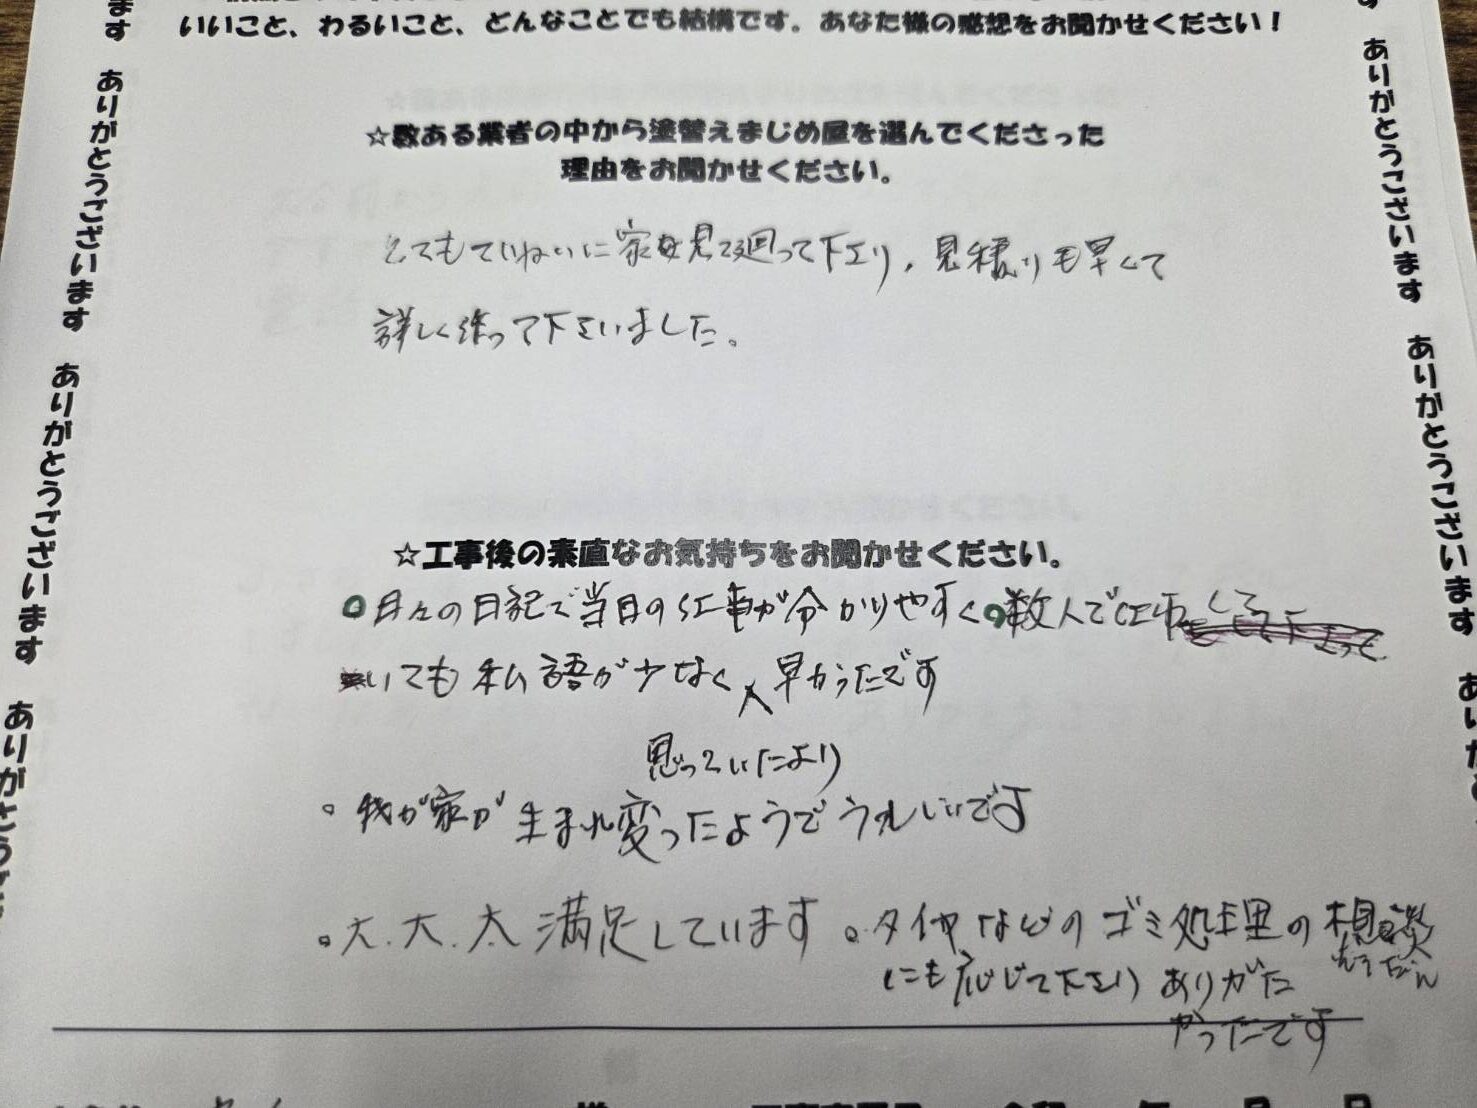 いいこと、わるいこと、どんなことでも結構です。あなた様の感想をお聞かせください！
☆数ある業者の中から塗替えまじめ屋を選んでくださった
理由をお聞かせください。
とてもていねいに家を見て廻って下さり、見積りも早くて
詳しく塗って下さいました。
☆工事後の素直なお気持ちをお聞かせください。
○日々の日記で当日の工事が分かりやすく○数人で仕事して
いても私語が少なく、早かったです
思っていたより
○我が家が生まれ変ったようでうれしいです
○大、大、大満足しています
○タイヤなどのゴミ処理の相談
そうだん
にも応じて下さり ありがた
かったです
ます ありがとうございます ありがとうございます ありがとうござい
す ありがとうございます ありがとうございます ありがと